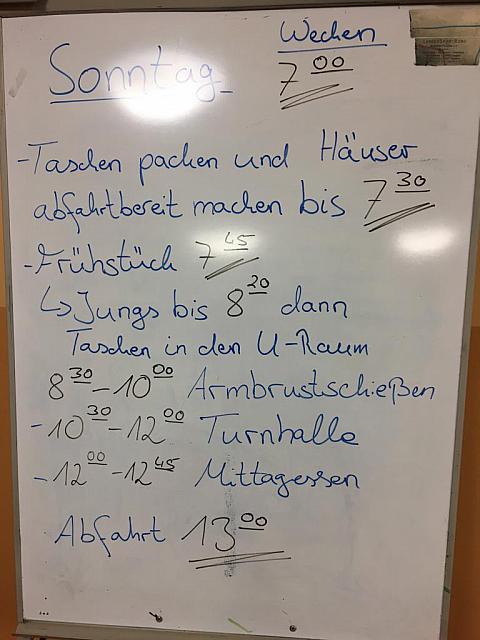 Wecken
Sonntag 7 00
- Taschen packen und Häuser
abfahrtbereit machen bis 7 30
- Frühstück 7 45
↳ Jungs bis 8 20 dann
Taschen in den U-Raum
8 30 - 10 00 Armbrustschießen
- 10 30 - 12 00 Turnhalle
- 12 00 - 12 45 Mittagessen
Abfahrt 13 00